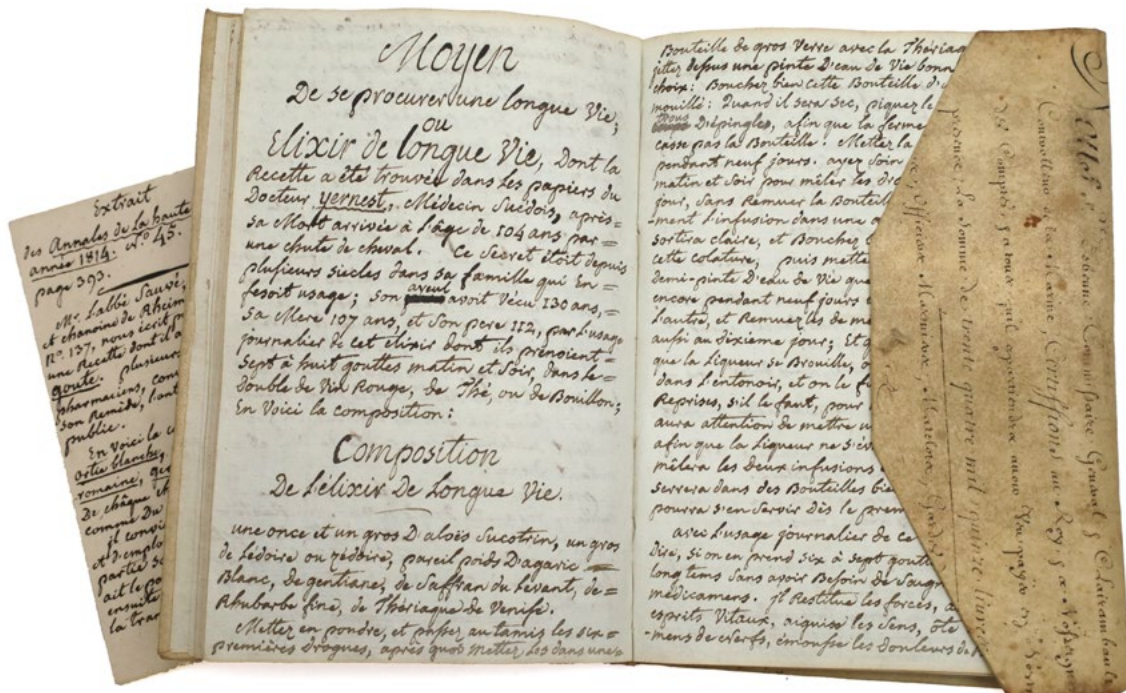 Extrait
des Annales de la haute
année 1814. N.° 45.
page 393.
Mr. L'abbé Sauvé,
et chanoine de Rheim
N.° 137, nous écrit
une Recette dont il a
goute. plusieurs
pharmaciens, con
son Remède, l'ont
publie.
En Voici la c
ortie blanche,
romaine,
De châque
comme Du
il convi
d'emplo
partie
ait le
ensuite
la tra
Moyen
De se procurer une longue Vie,
ou
Elixir de longue Vie, Dont la
Recette a été trouvée dans les papiers du
Docteur yernest, Médecin Suédois, après=
sa Mort arrivée à l'âge de 104 ans par=
une chute de cheval. Ce Secret étoit depuis
plusieurs siecles dans sa famille qui En=
fesoit usage; son ayeul avoit Vécu 130 ans,=
sa Mere 107 ans, et Son pere 112, par L'usage
journalier de cet élixir dont ils prenoient=
sept à huit gouttes matin et soir, dans le=
double de Vin Rouge, de Thé, ou de Bouillon;
En Voici la composition:
Composition
De L'élixir De Longue Vie.
une once et un gros D'aloës Succotrin, un gros
de Lédoire ou zédoire, pareil poids D'agaric=
Blanc, de gentiane, de Saffran du Levant, de=
Rhubarbe fine, de Thériaque de Venise.
Mettez en poudre, et passez au tamis les six=
premières Drogues, après quoi mettez les dans une=
Bouteille de gros Verre avec la Thériaq
jettez dessus une pinte D'eau de Vie bonn
choix: Bouchez bien cette Bouteille d'
mouillé: Quand il sera sec, piquez le
trous D'épingles, afin que la ferme
casse pas la Bouteille: Mettez la
pendant neuf jours. ayez soin
matin et Soir pour mêler les dro
jour, Sans Remuer la Bouteill
ment L'infusion dans une a
sortira claire, et Bouchez
cette colature; puis mette
demi-pinte D'eau de Vie que
encore pendant neuf jours
L'autre, et Remuez les de me
aussi au dixieme jour; Et q
que la Liqueur se Brouille, o
dans L'entonoir, et on le f
Reprises, s'il le faut, pour
aura attention de mettre u
afin que la Liqueur ne s'év
mêlera les deux infusions
serrera dans des Bouteilles bie
pourra s'en servir Dès le prem
avec L'usage journalier de ce
Dire, si on en prend six à sept goutt
long tems Sans avoir Besoin de Saign
médicamens. il Restitue les forces, a
esprits Vitaux, aiguise les Sens, ôte
mens de Nerfs, émousse les Douleurs de
Commissaire General & Clairambault
Marine, Confessions au Roy
& Compris
la Somme de trente quatre mil quinze livres